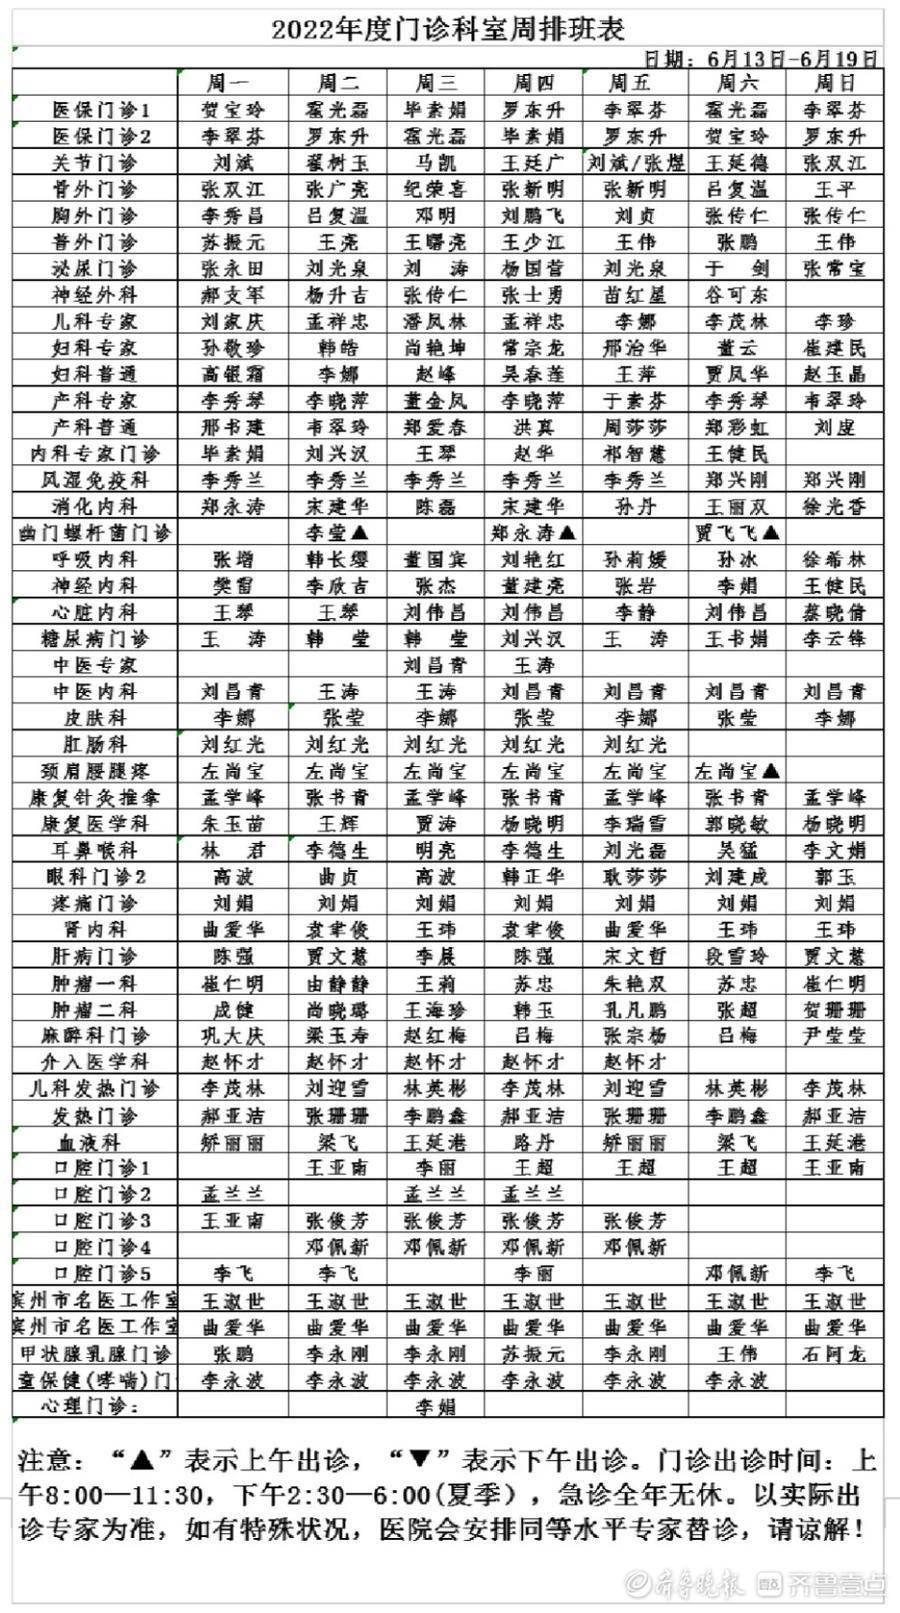 2022年度门诊科室周排班表
日期：6月13日-6月19日
周一 周二 周三 周四 周五 周六 周日
医保门诊1 贺宝玲 霍光磊 毕素娟 罗东升 李翠芬 霍光磊 李翠芬
医保门诊2 李翠芬 罗东升 霍光磊 毕素娟 罗东升 贺宝玲 罗东升
关节门诊 刘斌 翟树玉 马凯 王廷广 刘斌/张煜 王延德 张双江
骨外门诊 张双江 张广亮 纪荣喜 张新明 张新明 吕复温 王平
胸外门诊 李秀昌 吕复温 邓明 刘鹏飞 刘贞 张传仁 张传仁
普外门诊 苏振元 王亮 王曙亮 王少江 王伟 张鹏 王伟
泌尿门诊 张永田 刘光泉 刘 涛 杨国营 刘光泉 于 剑 张常宝
神经外科 郝支军 杨升吉 张传仁 张士勇 苗红星 谷可东
儿科专家 刘家庆 孟祥忠 潘凤林 孟祥忠 李娜 李茂林 李珍
妇科专家 孙敬珍 韩皓 尚艳坤 常宗龙 邢治华 董云 崔建民
妇科普通 高银霜 李娜 赵峰 吴春莲 王萍 贾凤华 赵玉晶
产科专家 李秀琴 李晓萍 董金凤 李晓萍 于素芬 李秀琴 韦翠玲
产科普通 邢书建 韦翠玲 郑爱春 洪真 周莎莎 郑彩虹 刘虔
内科专家门诊 毕素娟 刘兴汉 王琴 赵华 祁智慧 王健民
风湿免疫科 李秀兰 李秀兰 李秀兰 李秀兰 李秀兰 郑兴刚 郑兴刚
消化内科 郑永涛 宋建华 陈磊 宋建华 孙丹 王丽双 徐光香
幽门螺杆菌门诊 李莹▲ 郑永涛▲ 贾飞飞▲
呼吸内科 张增 韩长缨 董国宾 刘艳红 孙莉媛 孙冰 徐希林
神经内科 樊雷 李欣吉 张杰 董建亮 张岩 李娟 王健民
心脏内科 王琴 王琴 刘伟昌 刘伟昌 李静 刘伟昌 蔡晓倩
糖尿病门诊 王 涛 韩 莹 韩 莹 刘兴汉 王 涛 王书娟 李云锋
中医专家 刘昌青 王涛
中医内科 刘昌青 王涛 王涛 刘昌青 刘昌青 刘昌青 刘昌青
皮肤科 李娜 张莹 李娜 张莹 李娜 张莹 李娜
肛肠科 刘红光 刘红光 刘红光 刘红光 刘红光
颈肩腰腿疼 左尚宝 左尚宝 左尚宝 左尚宝 左尚宝 左尚宝▲
康复针灸推拿 孟学峰 张书青 孟学峰 张书青 孟学峰 张书青 孟学峰
康复医学科 朱玉苗 王辉 贾涛 杨晓明 李瑞雪 郭晓敏 杨晓明
耳鼻喉科 林 君 李德生 明亮 李德生 刘光磊 吴猛 李文娟
眼科门诊2 高波 曲贞 高波 韩正华 耿莎莎 刘建成 郭玉
疼痛门诊 刘娟 刘娟 刘娟 刘娟 刘娟 刘娟 刘娟
肾内科 曲爱华 袁聿俊 王玮 袁聿俊 曲爱华 王玮 王玮
肝病门诊 陈强 贾文慧 李晨 陈强 宋文哲 段雪玲 贾文慧
肿瘤一科 崔仁明 由静静 王莉 苏忠 朱艳双 苏忠 崔仁明
肿瘤二科 成健 尚晓璐 王海珍 韩玉 孔凡鹏 张超 贺珊珊
麻醉科门诊 巩大庆 梁玉寿 赵红梅 吕梅 张宗杨 吕梅 尹莹莹
介入医学科 赵怀才 赵怀才 赵怀才 赵怀才 赵怀才
儿科发热门诊 李茂林 刘迎雪 林英彬 李茂林 刘迎雪 林英彬 李茂林
发热门诊 郝亚洁 张珊珊 李鹏鑫 郝亚洁 张珊珊 李鹏鑫 郝亚洁
血液科 矫丽丽 梁飞 王延港 路丹 矫丽丽 梁飞 王延港
口腔门诊1 王亚南 李丽 王超 王超 王超 王亚南
口腔门诊2 孟兰兰 孟兰兰 孟兰兰
口腔门诊3 王亚南 张俊芳 张俊芳 张俊芳 张俊芳
口腔门诊4 邓佩新 邓佩新 邓佩新 邓佩新
口腔门诊5 李飞 李飞 李丽 邓佩新 李飞
滨州市名医工作室 王淑世 王淑世 王淑世 王淑世 王淑世 王淑世 王淑世
滨州市名医工作室 曲爱华 曲爱华 曲爱华 曲爱华 曲爱华 曲爱华 曲爱华
甲状腺乳腺门诊 张鹏 李永刚 李永刚 苏振元 李永刚 王伟 石阿龙
童保健(哮喘)门 李永波 李永波 李永波 李永波 李永波 李永波
心理门诊： 李娟
注意：“▲”表示上午出诊，“▼”表示下午出诊。门诊出诊时间：上
午8:00—11:30，下午2:30—6:00(夏季），急诊全年无休。以实际出
诊专家为准，如有特殊状况，医院会安排同等水平专家替诊，请谅解！
齐鲁晚报 齐鲁壹点